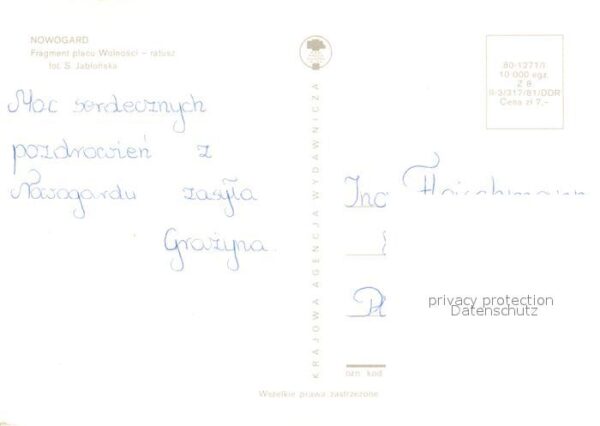 NOWOGARD
Fragment placu Wolności — ratusz
fot. S. Jabłońska
Moc serdecznych
pozdrowień z
Nowogardu zasyła
Grażyna
KRAJOWA AGENCJA WYDAWNICZA
80-1271/I
10 000 egz.
Z 8
R-3/317/81/DDR
Cena zł 7,—
privacy protection
Datenschutz
ozn. kod
Wszelkie prawa zastrzeżone